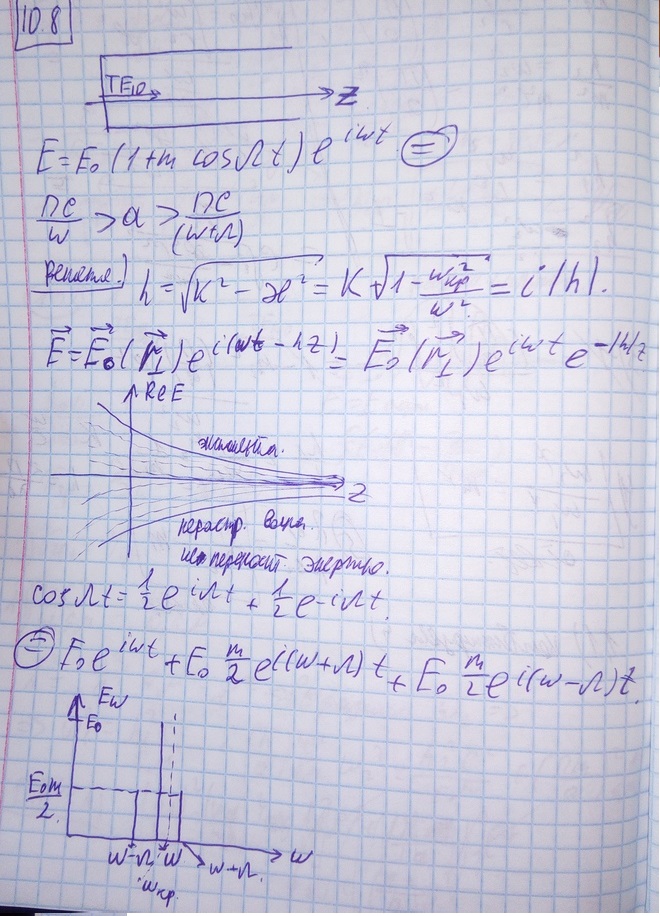 10.8
TE₁₀
Z
E = E₀ (1+m cosΩt) e^{iωt} =
πc/ω > a > πc/(ω+Ω)
h = √(K² - æ²) = K √(1 - ω²кр/ω²) = i|h|.
E⃗ = E⃗₀(r⃗⊥) e^{i(ωt - hz)} = E⃗₀(r⃗⊥) e^{iωt} e^{-|h|z}
Re E
экспонента.
Z
нераспр. волна.
не переносит энергию.
cosΩt = 1/2 e^{iΩt} + 1/2 e^{-iΩt}.
= E₀ e^{iωt} + E₀ m/2 e^{i(ω+Ω)t} + E₀ m/2 e^{i(ω-Ω)t}.
Eω
E₀
E₀m/2
ω-Ω ω ω+Ω. ω
ωкр.